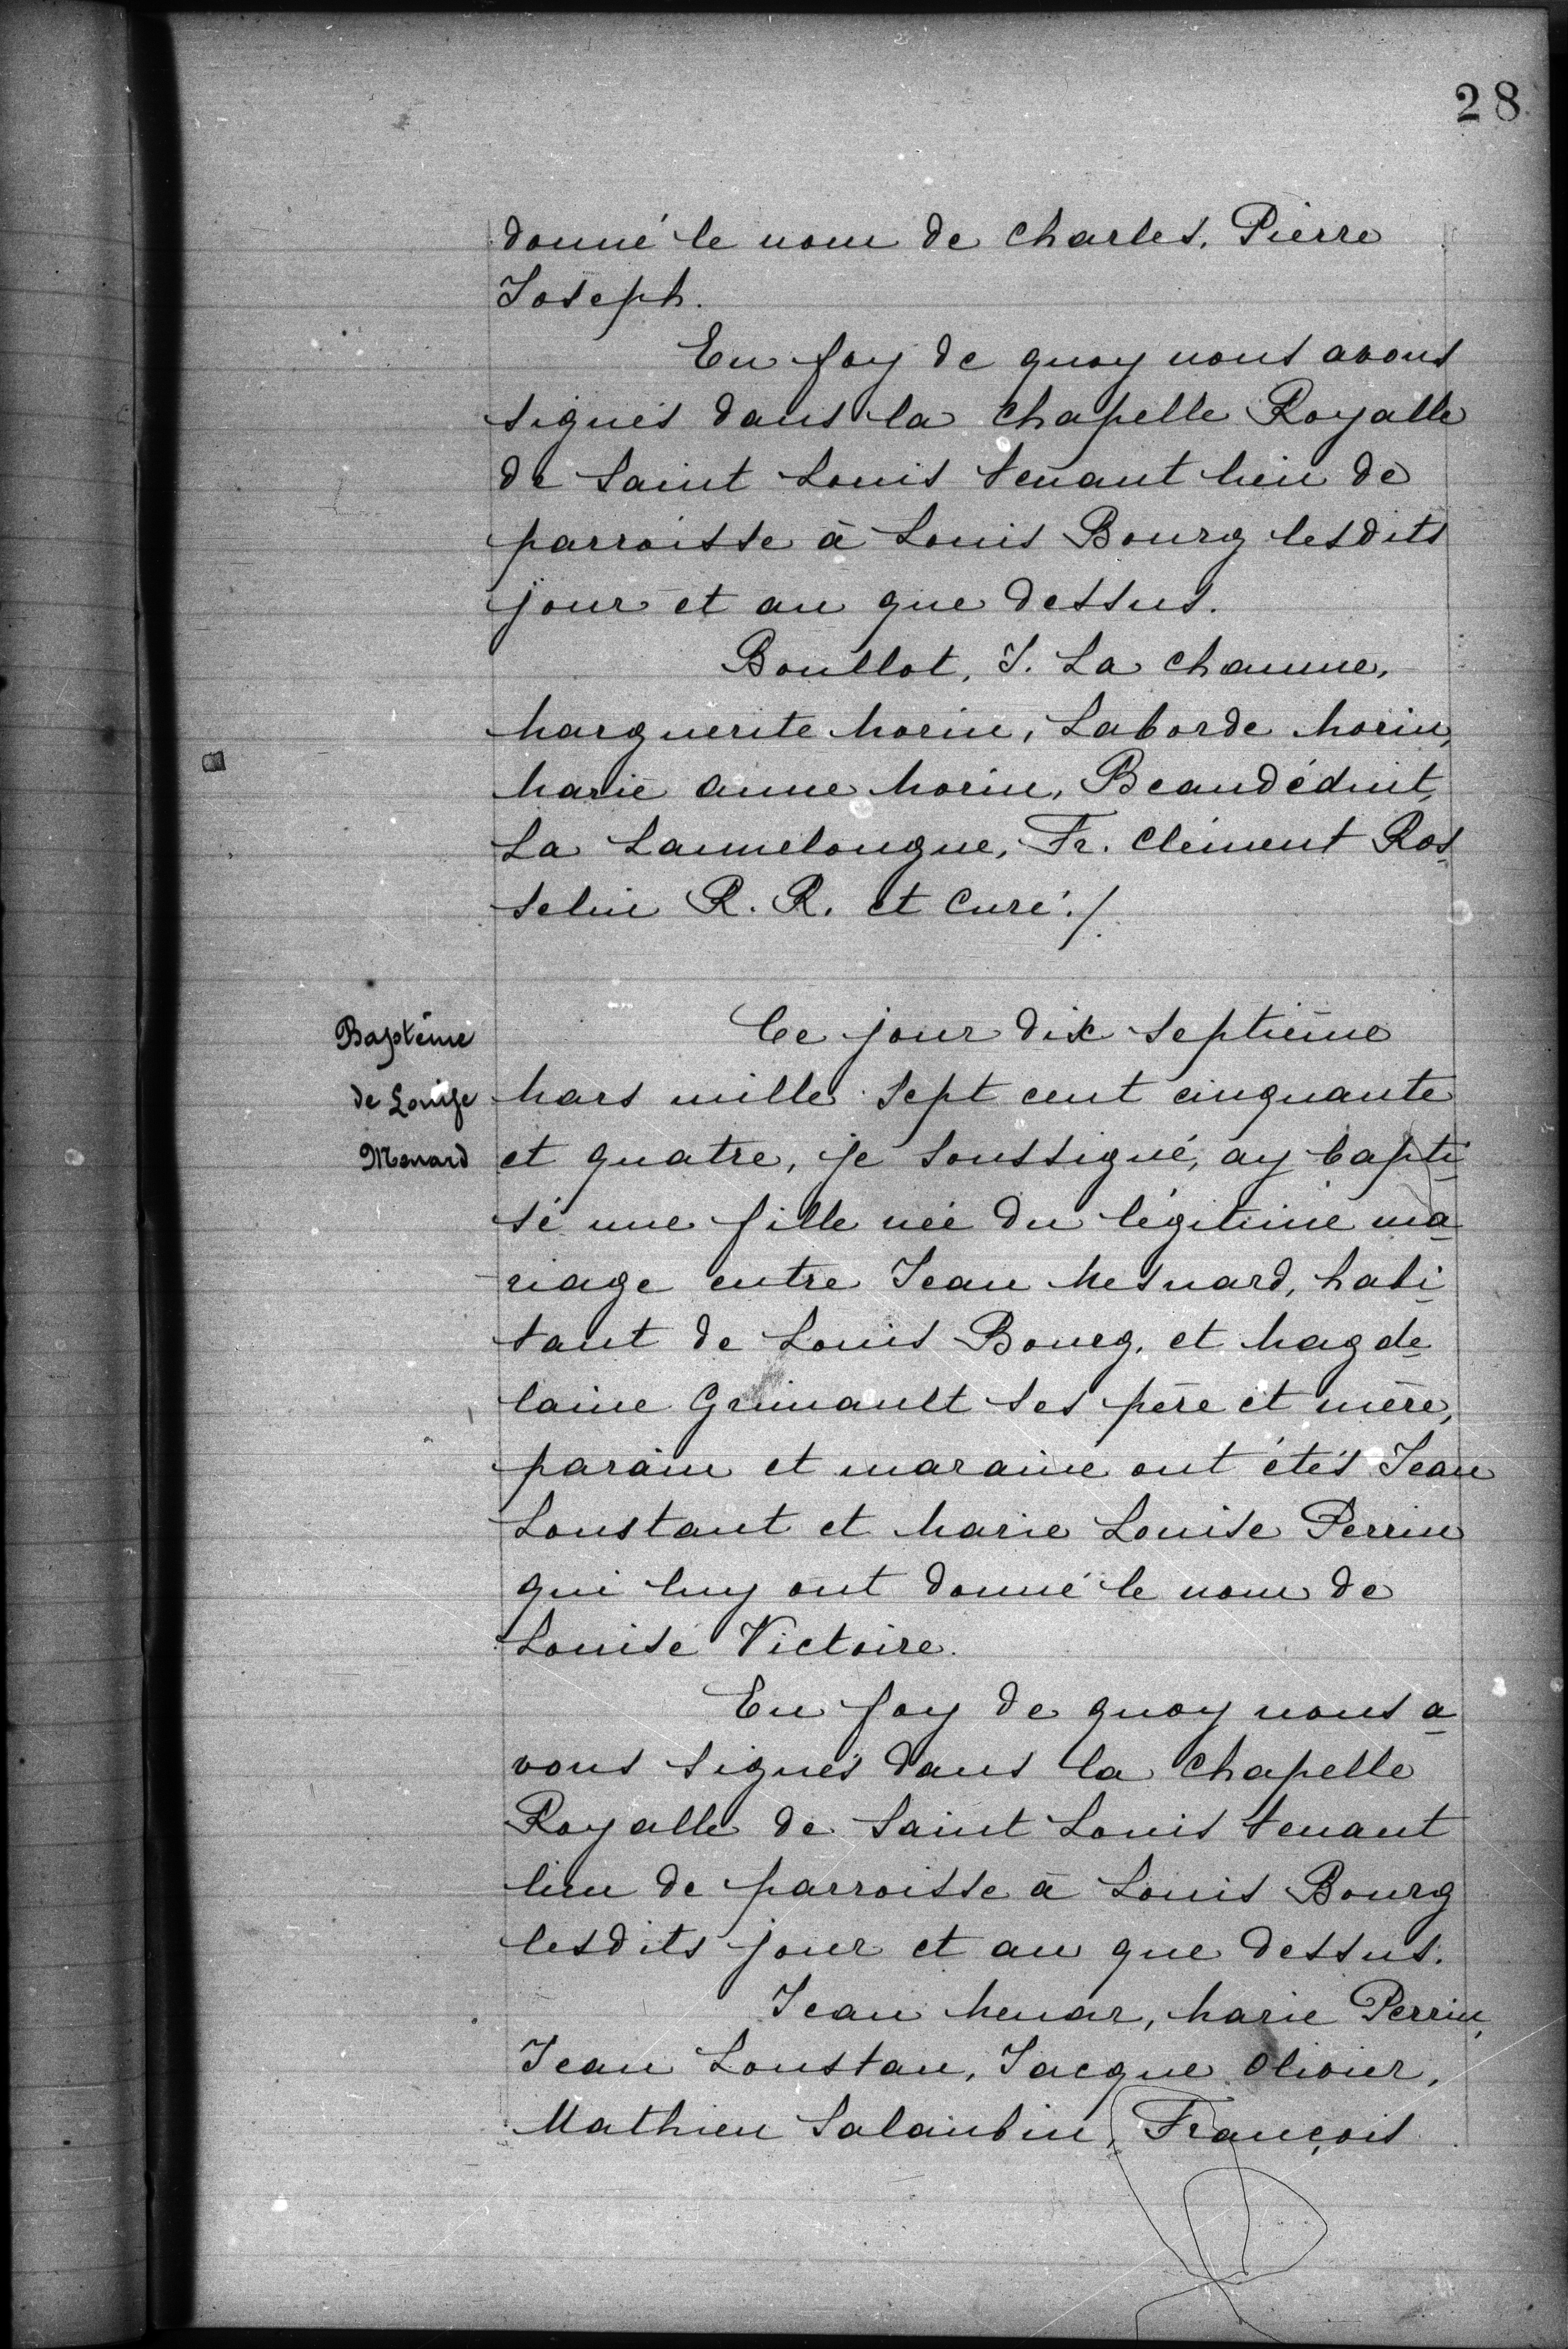 28
donné le nom de Charles, Pierre
Joseph.
En foy de quoy nous avons
signés dans la Chapelle Royalle
de Saint Louis tenant lieu de
parroisse à Louis Bourg lesdits
jour et an que dessus.
Boullot, J. La Chaume,
Marguerite Morin, Laborde Morin,
Marie Anne Morin, Beaudéduit,
La Lannelongue, Fr. Clément Ros-
selin R. R. et Curé./.
Baptême
de Louise
Menard
Ce jour dix septième
Mars mille sept cent cinquante
et quatre, je soussigné, ay bapti-
sé une fille née du légitime ma-
riage entre Jean Mesnard, habi-
tant de Louis Bourg, et Magde-
laine Grimault ses père et mère,
parain et maraine ont étés Jean
Loustant et Marie Louise Perrin
qui luy ont donné le nom de
Louise Victoire.
En foy de quoy nous a-
vons signés dans la Chapelle
Royalle de Saint Louis tenant
lieu de parroisse à Louis Bourg
lesdits jour et an que dessus.
Jean Menar, Marie Perrin,
Jean Loustau, Jacque Olivier,
Mathieu Salaubin, François